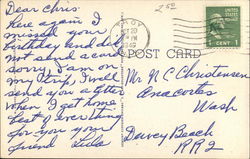 Dear Chris
Here again I
missed your
birthday and did
not send a card
sorry I am on
my trip, I will
send you a letter
when I get home
Best of everything
for you your
friend
POST CARD
UNITED STATES
POSTAGE
1 CENT 1
Mr. N C Christensen
Anacortes
Wash
Dewey Beach
RR2